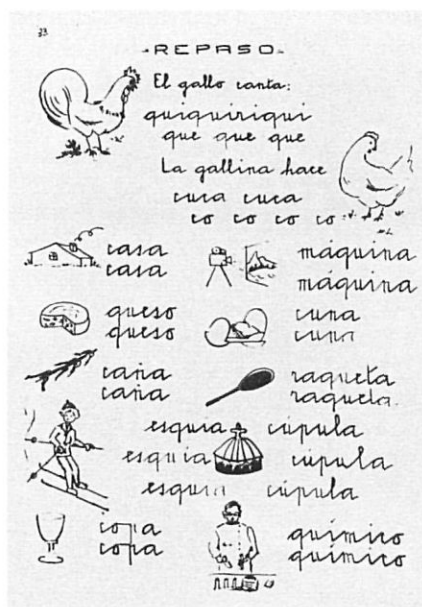 33
- REPASO -
El gallo canta:
quiquiriqui
que que que
La gallina hace
cuca cuca
co co co co
casa
casa
máquina
máquina
queso
queso
cuna
cuna
caña
caña
raqueta
raqueta
esquía cúpula
esquía cúpula
esquía cúpula
copa
copa
químico
químico